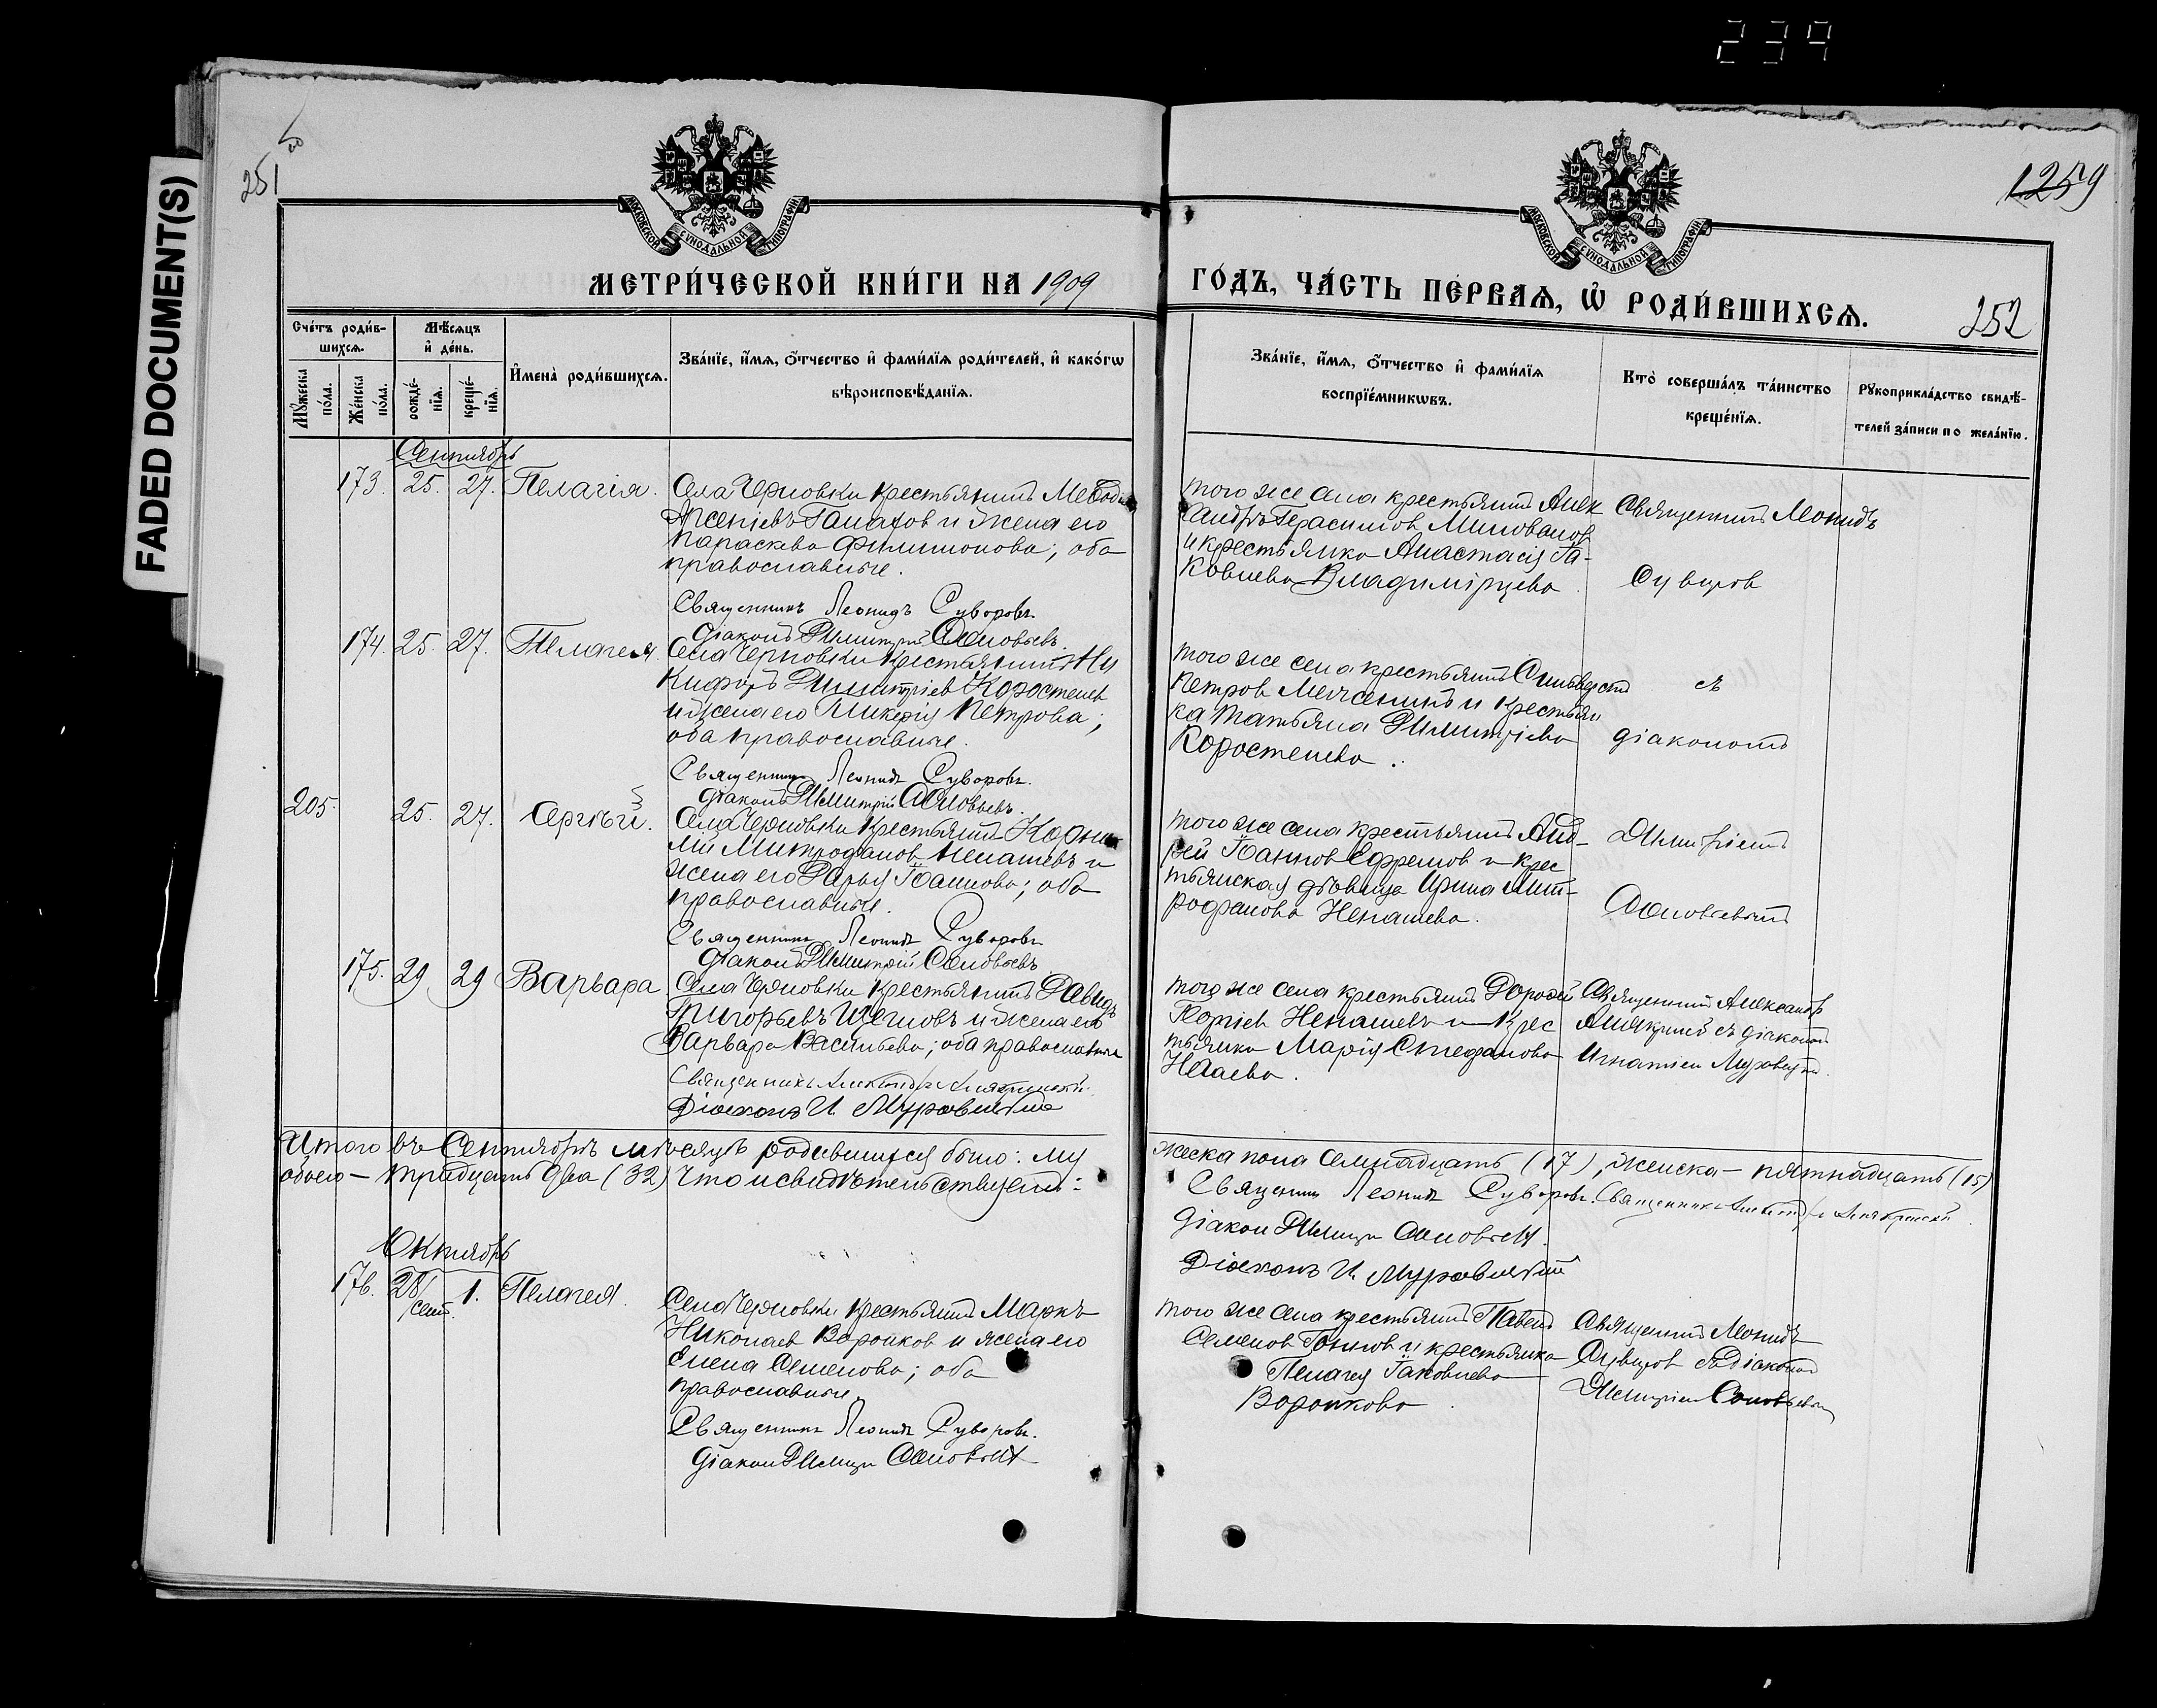 239
FADED DOCUMENT(S)
251
1259
МОСКОВСКОЙ СѴНОДАЛЬНОЙ ТИПОГРАФІИ
МОСКОВСКОЙ СѴНОДАЛЬНОЙ ТИПОГРАФІИ
МЕТРИ́ЧЕСКОЙ КНИ́ГИ НА 1909
ГО́ДЪ, ЧА́СТЬ ПЕ́РВАѦ, Ѡ҆ РОДИ́ВШИХСѦ.
252
Сче́тъ роди́в-
шихсѧ.
Мѣ́сѧцъ
и҆ де́нь.
Мꙋ́жеска
по́ла.
Же́нска
по́ла.
рожде́-
нїѧ.
креще́-
нїѧ.
И҆мена̀ роди́вшихсѧ.
Зва́нїе, и҆́мѧ, ѻ҆́тчество и҆ фами́лїѧ роди́телей, и҆ како́гѡ
вѣроисповѣ́данїѧ.
Зва́нїе, и҆́мѧ, ѻ҆́тчество и҆ фами́лїѧ
воспрїе́мникѡвъ.
Кто̀ соверша́лъ та́инство
креще́нїѧ.
Рꙋкоприкла́дство свидѣ́-
телей за́писи по жела́нїю.
Сентябрь
173. 25. 27. Пелагія.
Села Черновки крестьянинъ Меѳодій
Арсеніевъ и жена его
Параскева Филимонова; оба
православные.
Священникъ Леонидъ Суворовъ.
діаконъ Димитрій Соловьевъ.
того же села крестьянинъ Алек
сандръ Герасимов Милованов
и крестьянка Анастасія Іа-
ковлева Владимірцева.
Священникъ Леонидъ
Суворов
174. 25. 27. Пелагея.
Села Черновки крестьянинъ Ни
кифоръ Димитріев Коростелев
и жена его Гликерія Петрова;
оба православные.
Священникъ Леонидъ Суворовъ.
діаконъ Димитрій Соловьевъ.
того же села крестьянинъ Сильверстъ
Петров и крестьян
ка Татьяна Димитріева
Коростелева.
съ
діакономъ
205. 25. 27. Сергѣй.
Села Черновки крестьянинъ Корни
лій Митрофанов Ненашевъ и
жена его Дарья Іоаннова; оба
православные.
Священникъ Леонидъ Суворовъ.
діаконъ Димитрій Соловьевъ.
того же села крестьянинъ Анд-
рей Іоаннов Ефремов и крес
тьянская дѣвица Ирина Мит-
рофанова Ненашева.
Димитріемъ
Соловьевымъ
175. 29 29 Варвара
Села Черновки крестьянинъ Давидъ
Григорьевъ Щегловъ и жена его
Варвара Васильева; оба православные
Священникъ
Діаконъ И.
того же села крестьянинъ Дороѳей
Георгіев Ненашевъ и крес
тьянка Марія Стефанова
Священникъ Александръ
съ діакономъ
Игнатіем
Итого въ Сентябрѣ мѣсяцѣ родившихся было: му
жеска пола семнадцать (17), женска — пятнадцать (15)
обоего — тридцать два (32) Что и свидѣтельствуемъ:
Священникъ Леонидъ Суворовъ. Священникъ
діакон Димитрій Соловьевъ.
Діаконъ И.
Октябрь
176. 28/сент. 1. Пелагея.
Села Черновки крестьянинъ Маркъ
Николаев Воронков и жена его
Елена Семенова; оба
православные.
Священникъ Леонидъ Суворовъ.
діакон Димитрій Соловьевъ
того же села крестьянинъ Павелъ
Семенов и крестьянка
Пелагея Іаковлева
Воронкова.
Священникъ Леонидъ
Суворов съ діакономъ
Димитріем Соловьевым